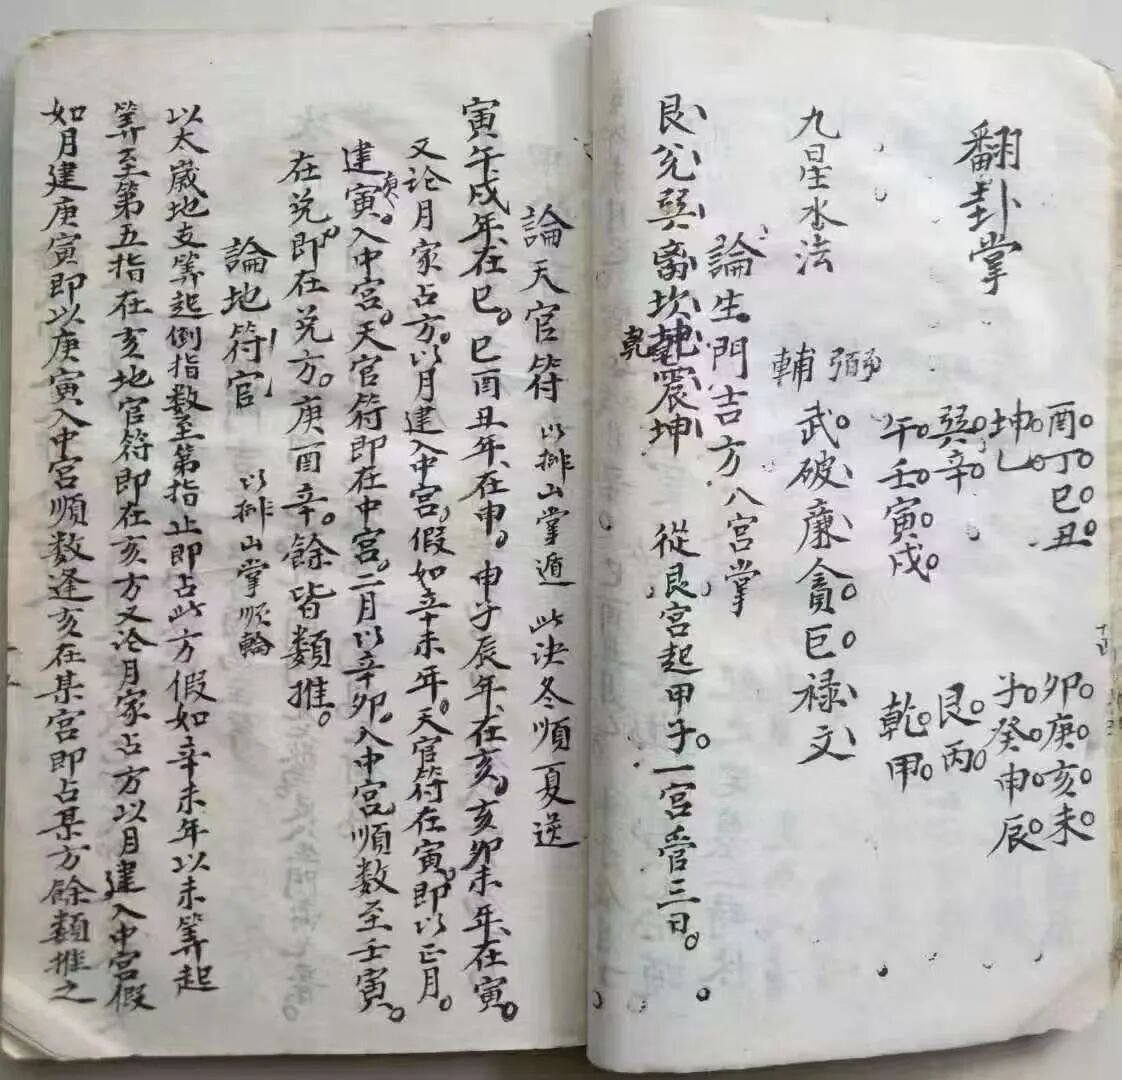 翻卦掌
酉。丁。巳。丑。
卯。庚。亥。未。
坤。乙。
子。癸。申。辰。
巽。辛。
艮。丙。
午。壬。寅。戌。
乾。甲。
九星水法
輔弼
武。破、廉、貪。巨。祿、文、
論生門吉方 八宮掌
艮、兊、巽、离、坎、乾、震、坤 從艮宮起甲子。一宮管三日。
乾
論天官符 以排山掌遁 此決冬順夏逆
寅午戌年、在巳。巳酉丑年、在申。申子辰年、在亥。亥卯未年、在寅。
又論月家占方。以月建入中宮、假如辛未年。天官符在寅。即以正月。
建庚寅。入中宮。天官符即在中宮。二月以辛卯。入中宮順数至壬寅。
在兊。即在兊方。庚酉辛。餘皆類推。
論地符官 以排山掌順輪
以太嵗地支筭起倒指数至第指止即占此方假如辛未年以未筭起
筭至第五指在亥地官符即在亥方又論月家占方以月建入中宮假
如月建庚寅即以庚寅入中宮順数逢亥在某宮即占某方餘類推之